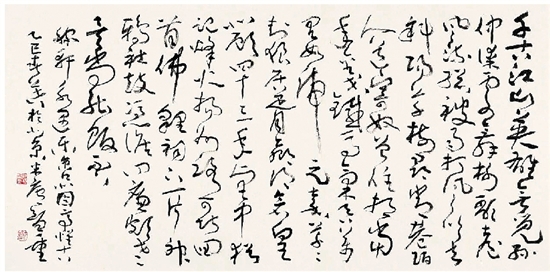 千古江山英雄无觅孙
仲谋处舞榭歌台
风流总被雨打风吹去
斜阳草树寻常巷陌
人道寄奴曾住想当
年金戈铁马气吞万
里如虎 元嘉草草
封狼居胥赢得仓皇
北顾四十三年望中犹
记烽火扬州路可堪回
首佛狸祠下一片神
鸦社鼓凭谁问廉颇老
矣尚能饭否
稼轩永遇乐京口北固亭怀古
乙巳春于北京